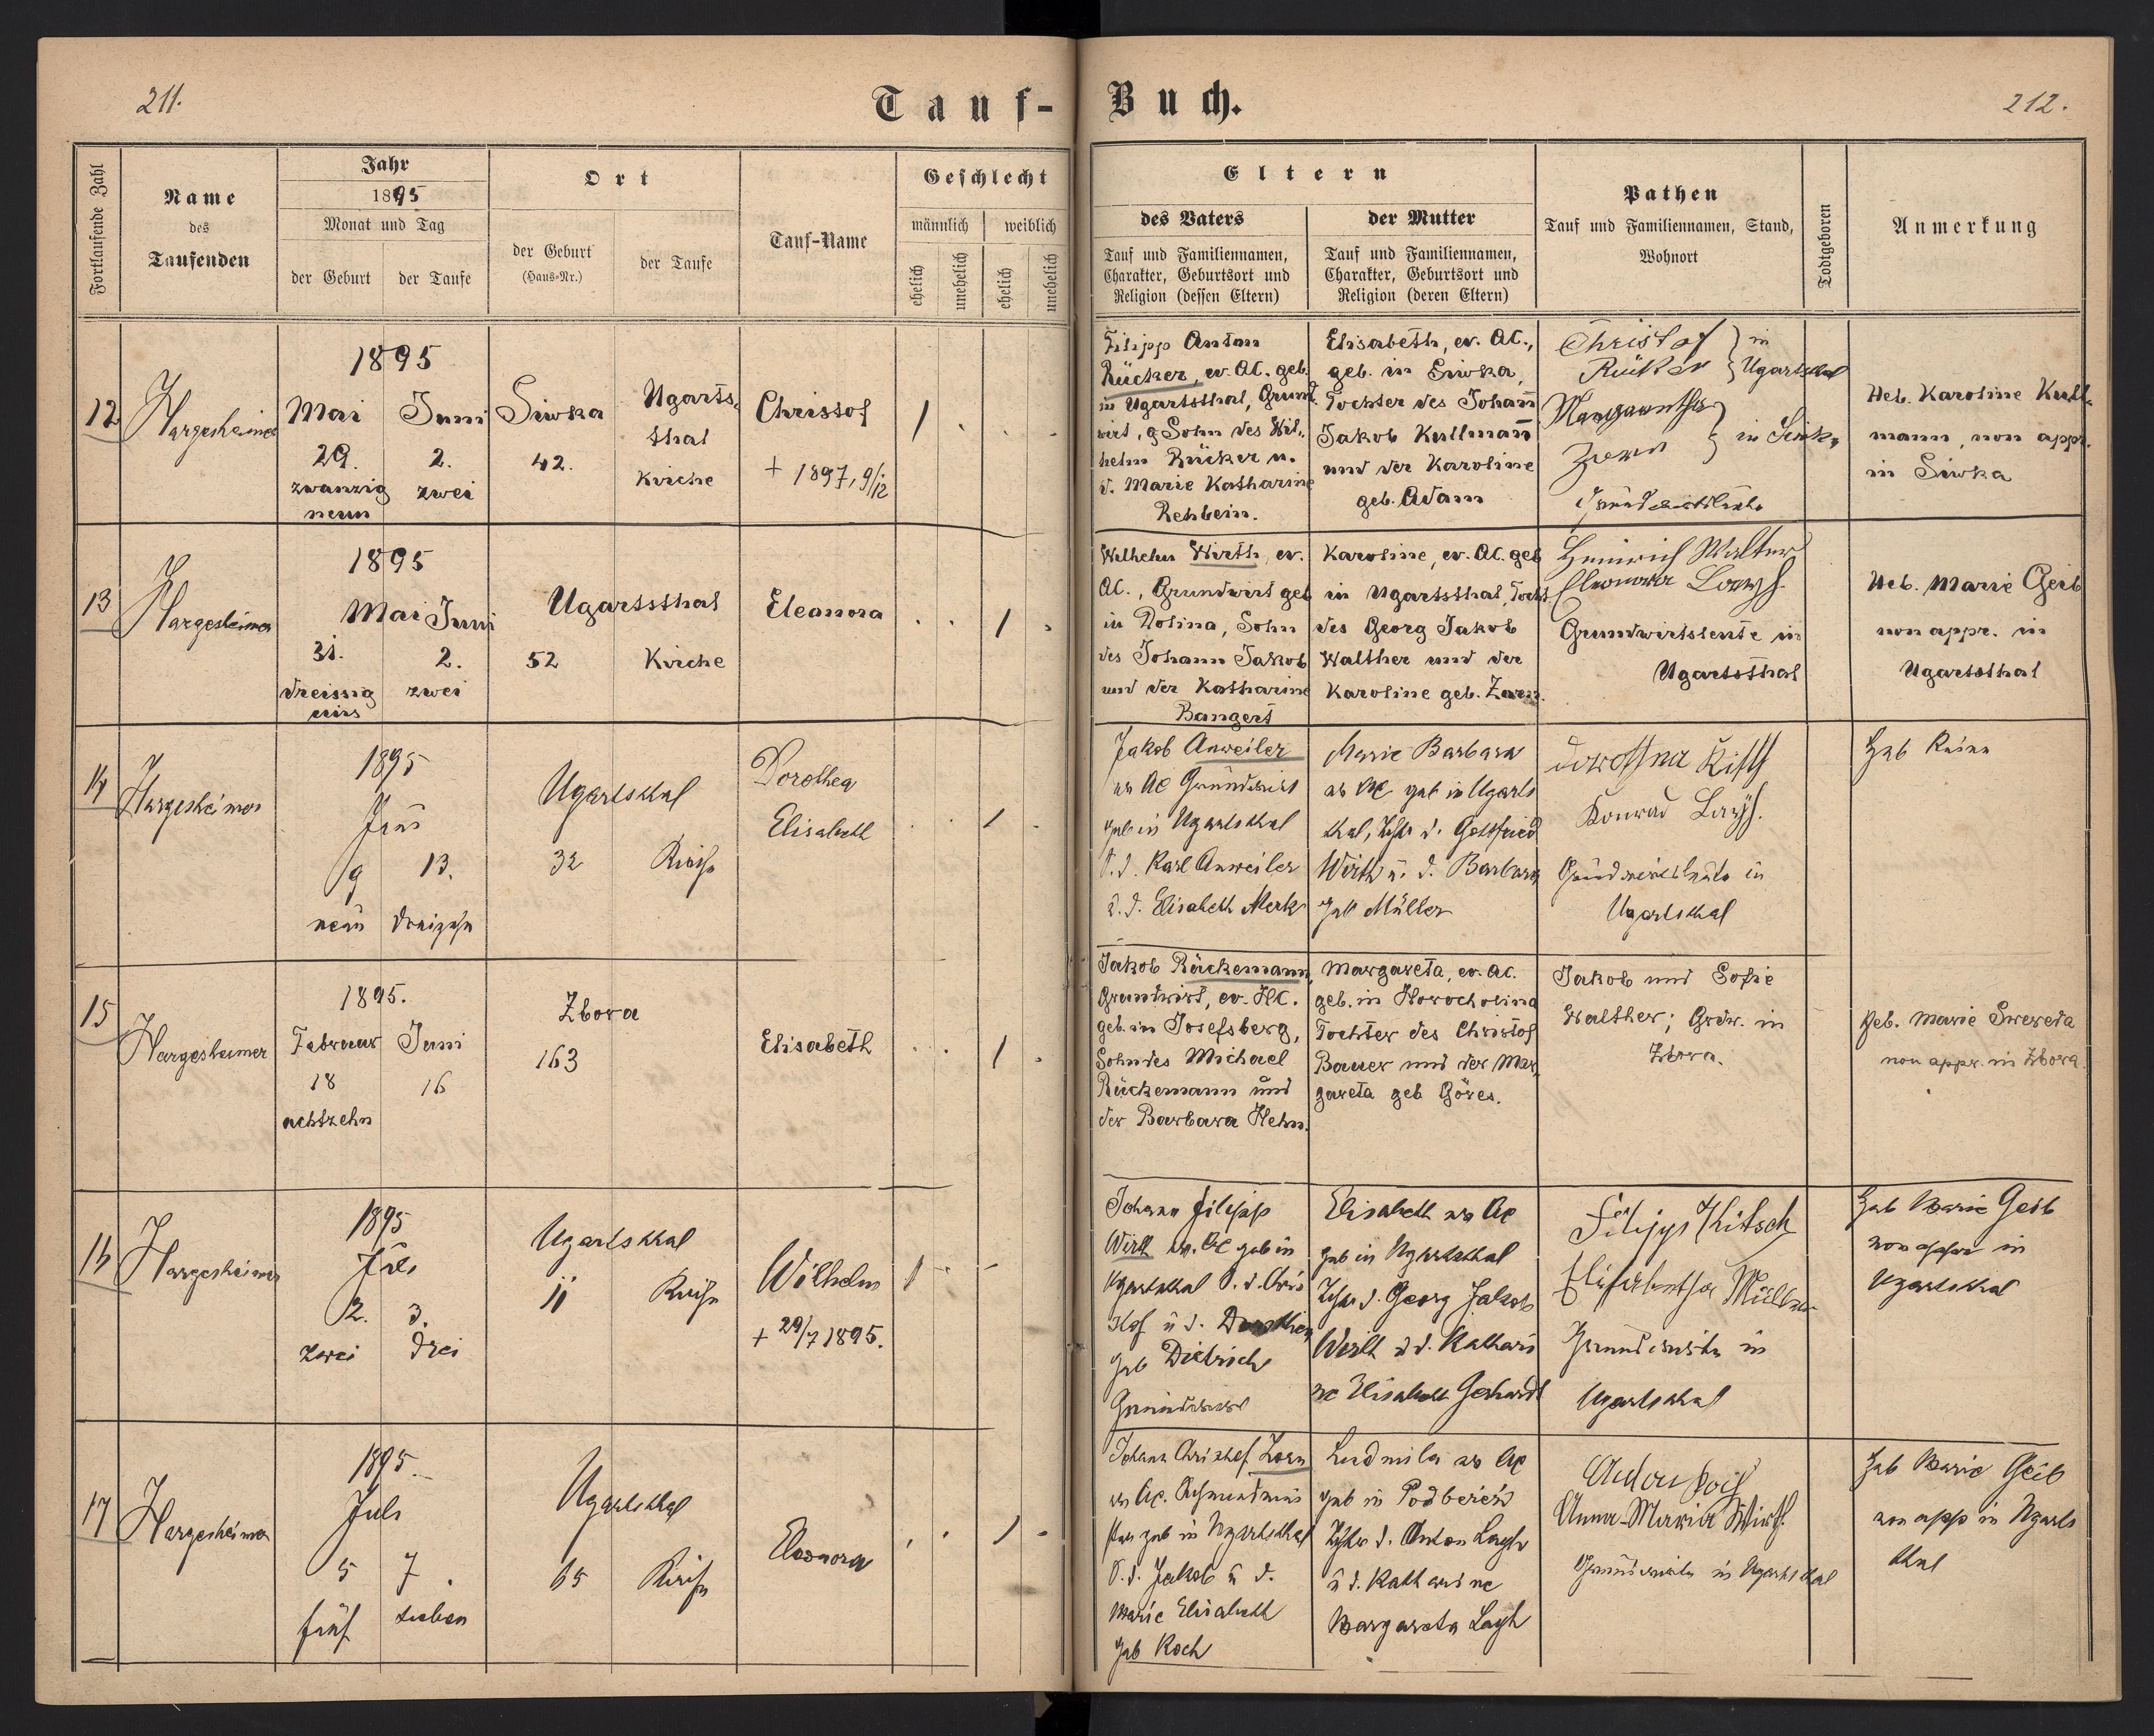 211.
Tauf-
Fortlaufende Zahl
Name
des
Taufenden
Jahr
1895
Monat und Tag
der Geburt
der Taufe
Ort
der Geburt
(Haus-Nr.)
der Taufe
Tauf-Name
Geschlecht
männlich
weiblich
ehelich
unehelich
ehelich
unehelich
12
Hargesheimer
1895
Mai
Juni
29.
2.
zwanzig
neun
zwei
Siwka
42.
Ugarts-
thal
Kirche
Christof
+ 1897, 9/12
13
Hargesheimer
1895
Mai
Juni
31.
2.
dreissig
eins
zwei
Ugartsthal
52
Kirche
Eleanora
14
Hargesheimer
1895
Juni
9
13.
neun
dreizehn
Ugartsthal
32
Kirche
Dorothea
Elisabeth
15
Hargesheimer
1895.
Februar
Juni
18
16
achtzehn
Zbora
163
Elisabeth
16
Hargesheimer
1895
Juli
2.
3.
zwei
drei
Ugartsthal
11
Kirche
Wilhelm
+ 29/7 1895.
17
Hargesheimer
1895.
Juli
5
7.
fünf
sieben
Ugartsthal
65
Kirche
Eleonora
Buch.
212.
Eltern
des Vaters
Tauf und Familiennamen,
Charakter, Geburtsort und
Religion (dessen Eltern)
der Mutter
Tauf und Familiennamen,
Charakter, Geburtsort und
Religion (deren Eltern)
Pathen
Tauf und Familiennamen, Stand,
Wohnort
Todtgeboren
Anmerkung
Filipp Anton
Rücker, ev. AC. geb.
in Ugartsthal, Grund-
wirt, Sohn des Wil-
helm Rücker u.
d. Marie Katharine
Rehbein.
Elisabeth, ev. AC.,
geb. in Siwka,
Tochter des Johann
Jakob Kullmann
und der Karoline
geb. Adam
Christof
Rücker
in
Ugartsthal
Margaretha
Zorn
in Siwka
Grundwirtsleute
Heb. Karoline Kull-
mann, non appr.
in Siwka
Wilhelm Wirth, ev.
AC., Grundwirt geb
in Rolina, Sohn
des Johann Jakob
und der Katharine
Bangert
Karoline, ev. AC. geb
in Ugartsthal, Tocht
des Georg Jakob
Walther und der
Karoline geb. Zorn.
Heinrich Walter
Eleonora Layh.
Grundwirtsleute in
Ugartsthal
Heb. Marie Geib
non appr. in
Ugartsthal
Jakob Anweiler
ev AC Grundwirt
geb in Ugartsthal
S. d. Karl Anweiler
u. d. Elisabeth Merk
Marie Barbara
ev AC geb in Ugarts
thal, Tchtr d. Gottfried
Wirth u. d. Barbara
geb Müller
Konrad Layh.
Grundwirtsleute in
Ugartsthal
Heb Keine
Jakob Rückemann,
Grundwirt, ev. HC.
geb. in Josefsberg,
Sohn des Michael
Rückemann und
der Barbara Hehn.
Margareta, ev. AC.
geb. in Horocholina
Tochter des Christof
Bauer und der Mar-
gareta geb Göres.
Jakob und Sofie
Walther; Grdw. in
Zbora.
Heb. Marie Swereda
non appr. in Zbora.
Johann Filipp
Wirth ev. AC geb in
Ugartsthal S. d. Chris
tof u d. Dorothea
geb Dietrich
Grundwirt
Elisabeth ev AC
geb in Ugartsthal
Tchtr d. Georg Jakob
Wirth u d. Kathari
ne Elisabeth Gerhardt
Filipp Kitsch
Elisabetha Müller
Grundwirte in
Ugartsthal
Heb Marie Geib
non appr in
Ugartsthal
Johann Christof Zorn
ev AC.
geb in Ugartsthal
S. d. Jakob u d.
Marie Elisabeth
geb Koch
Ludmila ev AC
geb in Podbereż
Tchtr d. Anton Layh
u d. Katharine
Margareta Layh
Anna-Maria Wirth.
Grundwirte in Ugartsthal
Heb Marie Geib
non app in Ugarts
thal